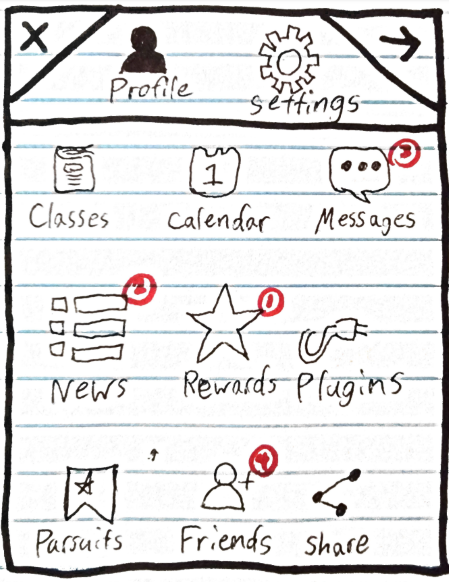 X →
Profile
settings
3
1
Classes calendar Messages
2 1
News Rewards Plugins
4
Parsuits Friends share